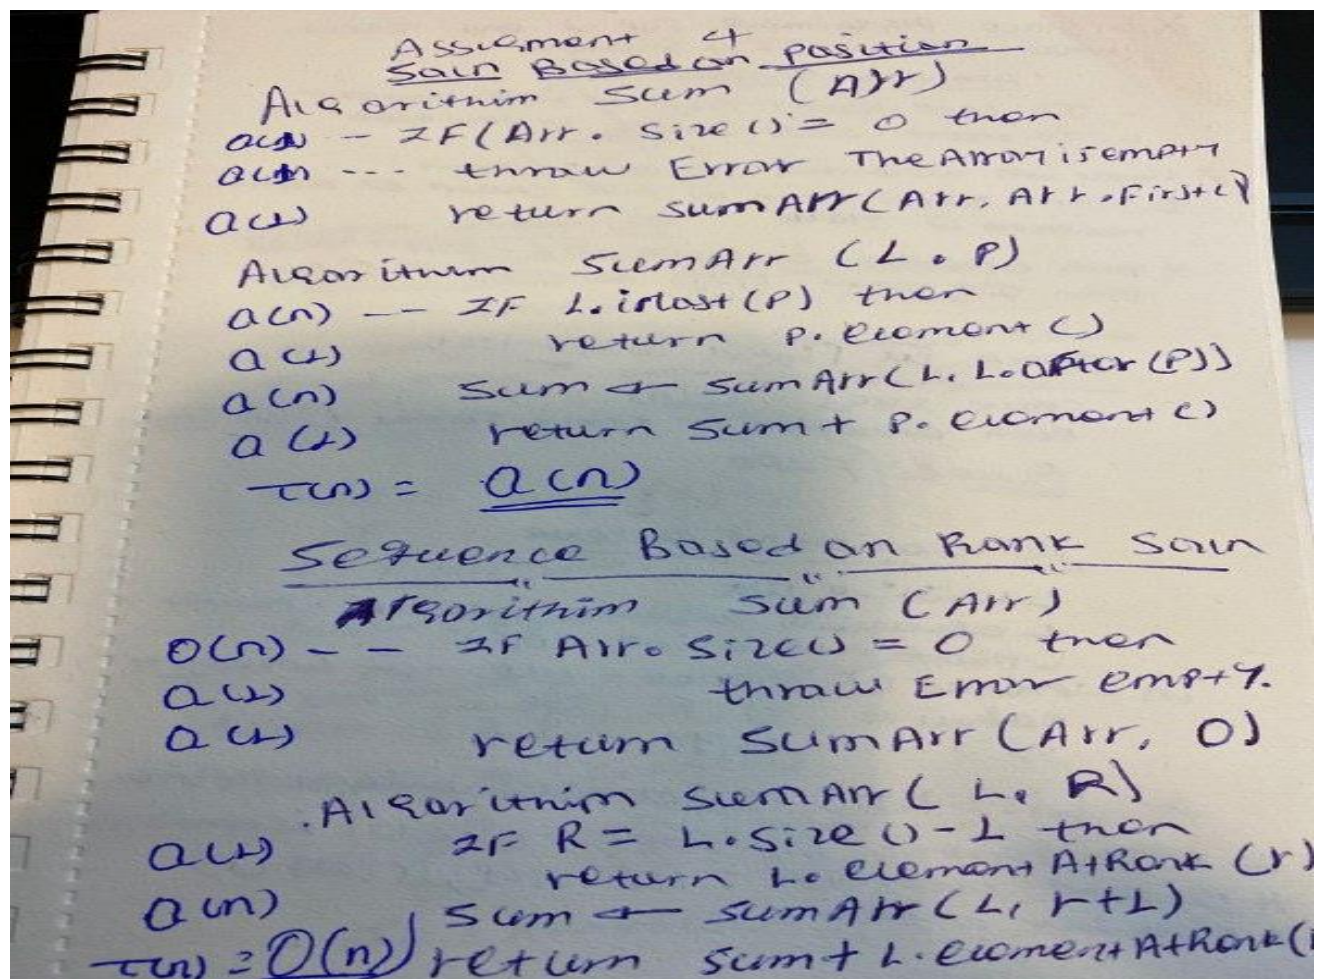 Assignment 4
Sain Based on Position
Algorithim Sum (Arr)
O(1) - IF (Arr. Size() = 0 then
O(1) --- thraw Error The Array is empty
O(1) return sumArr(Arr, Arr.First()
Algorithim SumArr (L, P)
O(n) -- IF L.islast(P) then
O(1) return P. element ()
O(n) Sum ← sumArr(L, L.after(P))
O(1) return Sum + P. element ()
T(n) = O(n)
Sequence Based on Rank Sain
Algorithim Sum (Arr)
O(n) -- IF Arr. Size() = 0 then
O(1) thraw Error empty.
O(1) return SumArr (Arr, 0)
Algorithim sumArr ( L, R)
O(1) IF R = L.Size () - 1 then
return L. element AtRank (r)
O(n) Sum ← sumArr (L, r+1)
T(n) = O(n) return sum + L. element AtRank (